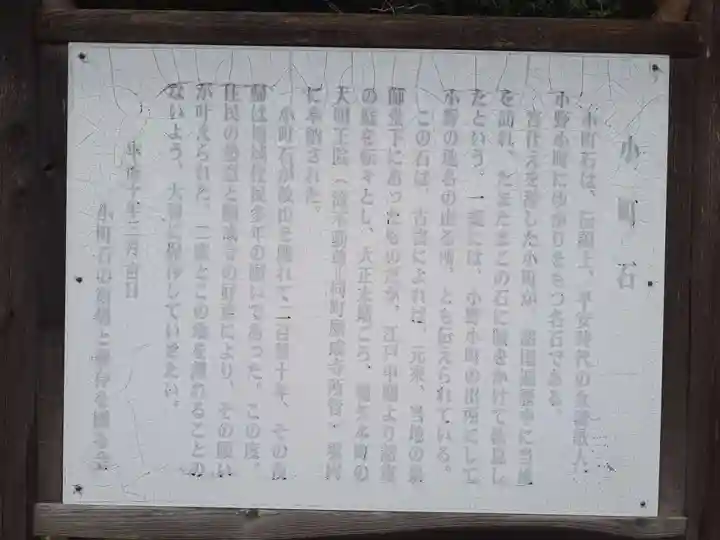 小町石
小町石は、伝説上、平安時代の女流歌人
小野小町にゆかりをもつ名石である。
宮仕えを辞した小町が、諸国遍歴中に当地
を訪れ、たまたまこの石に腰をかけて休息し
たという。一説には、小野小町の出所にして
小野の地名の由る所、とも伝えられている。
この石は、古書によれば、元来、当地の薬
師堂下にあったものだが、江戸中期より
の庭を転々とし、大正末期ごろ、
大明王院（
に奉納された。
小町石が故山を離れて二百数十年、その復
帰は地域住民多年の願いであった。この度、
住民の熱意と
が叶えられた。二度とこの地を離れることの
ないよう、大切に保存していきたい。
平成十年二月吉日
小町石の復帰と保存を図る会